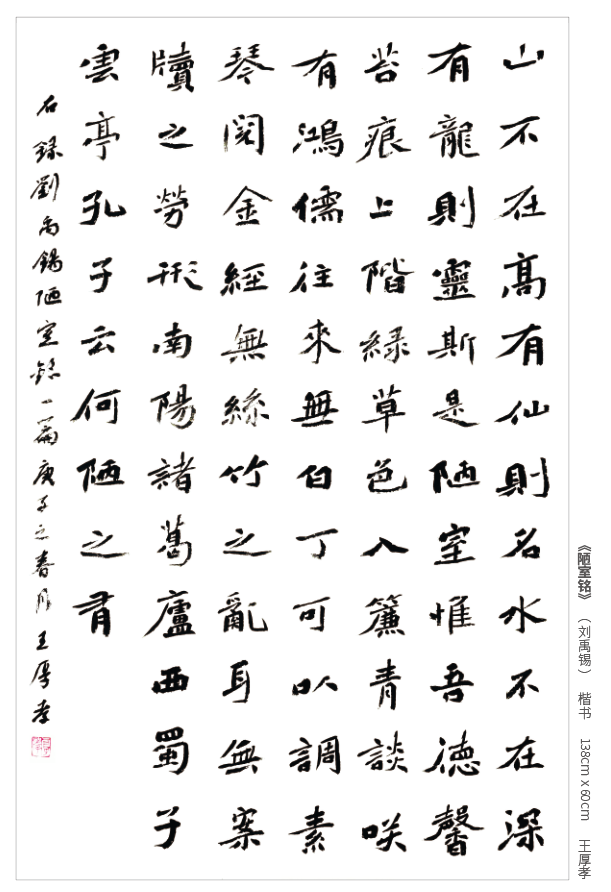 山不在高有仙則名水不在深
有龍則靈斯是陋室惟吾德馨
苔痕上階緑草色入簾青談咲
有鴻儒往來無白丁可㕥調素
琴閲金經無絲竹之亂耳無案
牘之勞形南陽諸葛廬西蜀子
雲亭孔子云何陋之有
右録劉禹錫陋室銘一篇庚子之春月王厚孝
《陋室铭》（刘禹锡） 楷书 138cm x 60cm 王厚孝